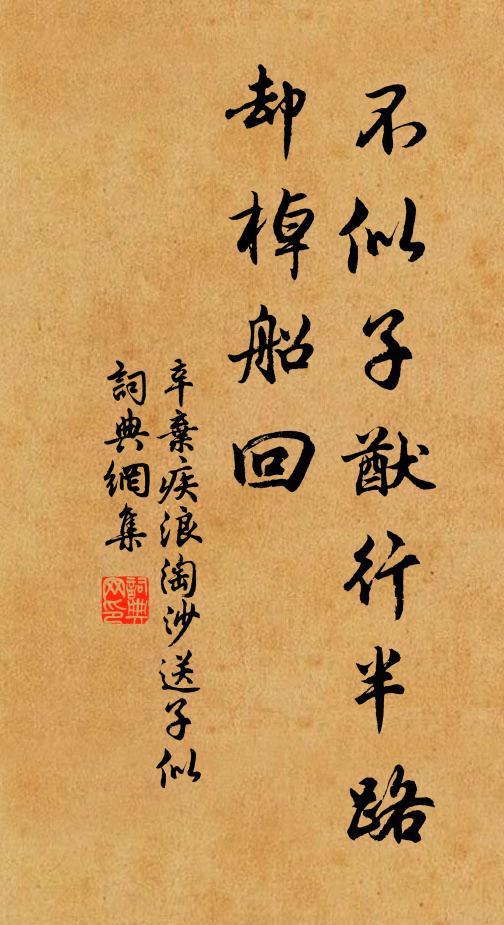 不似子猷行半路
却棹船回
辛棄疾浪淘沙送子似
詞典網集
詞典網印